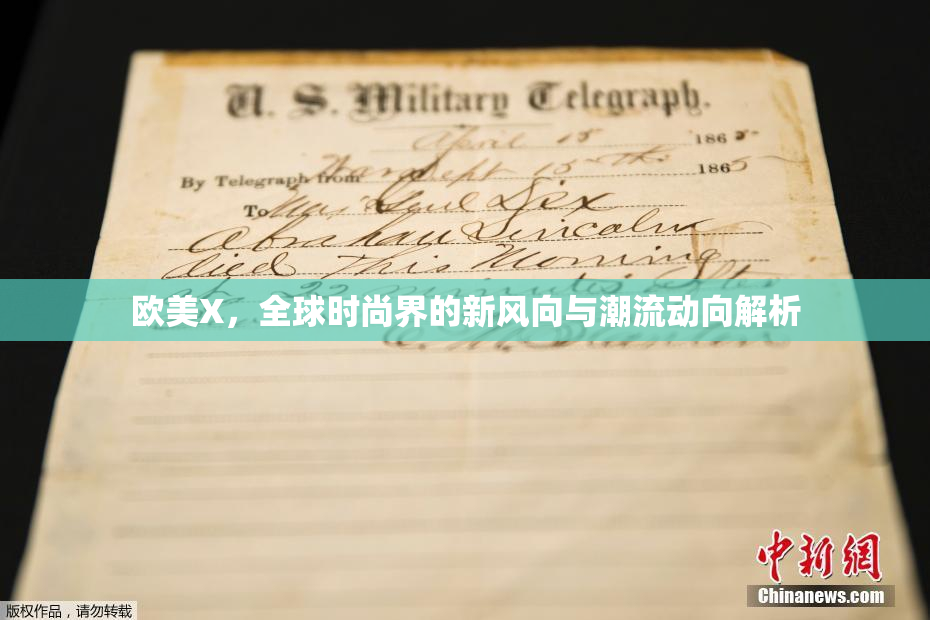 U. S. Military Telegraph.
April 15 1865
By Telegraph from War Dept 15th 1865
To Maj Genl Dix
Abraham Lincoln
died This Morning
at 22 minutes after
欧美X，全球时尚界的新风向与潮流动向解析
E. M. Stanton
中新网
Chinanews.com
版权作品，请勿转载